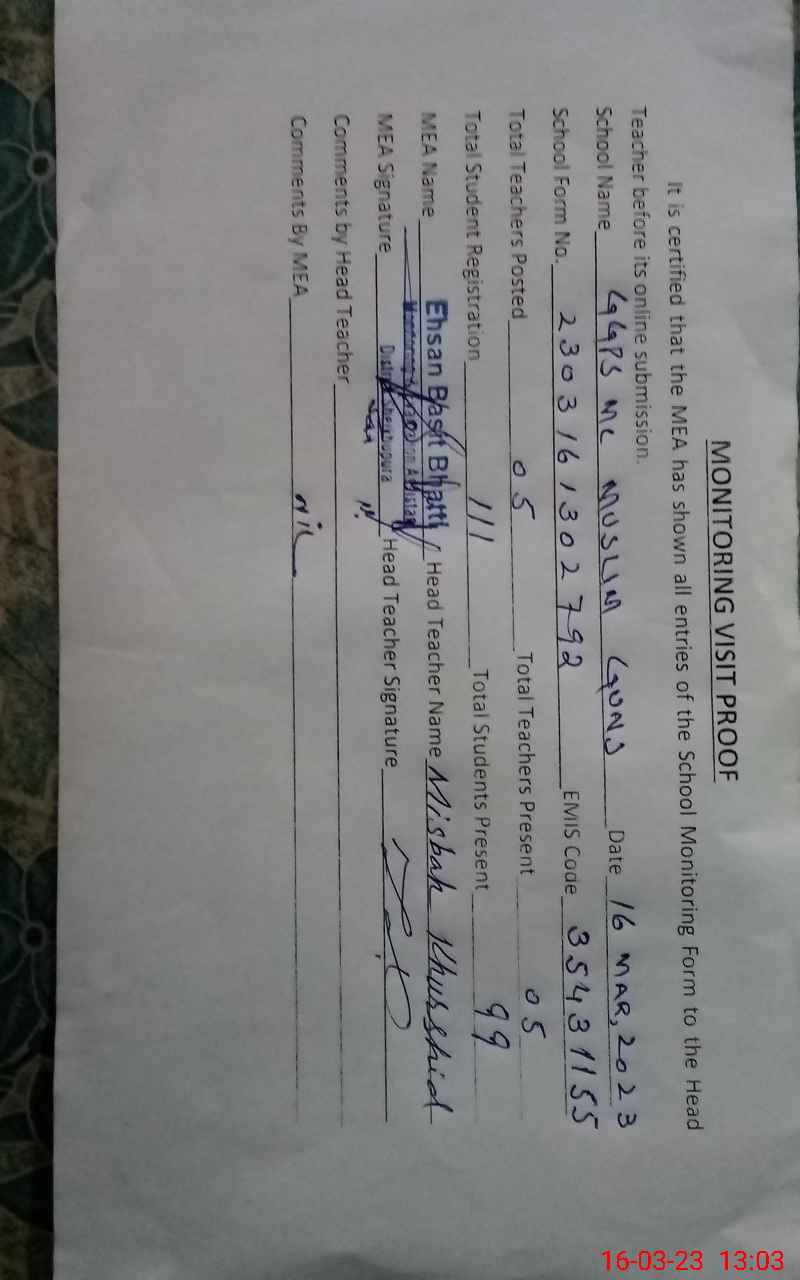 MONITORING VISIT PROOF
It is certified that the MEA has shown all entries of the School Monitoring Form to the Head
Teacher before its online submission.
School Name GGPS MC MUSLIM GUNJ Date 16 MAR, 2023
School Form No. 2303161302792 EMIS Code 35431155
Total Teachers Posted 05 Total Teachers Present 05
Total Student Registration 111 Total Students Present 99
MEA Name Ehsan Basit Bhatti Head Teacher Name Misbah Khurshid
Monitoring & Assistant
MEA Signature District Sheikhupura Head Teacher Signature
Comments by Head Teacher
Comments By MEA Nil
16-03-23 13:03